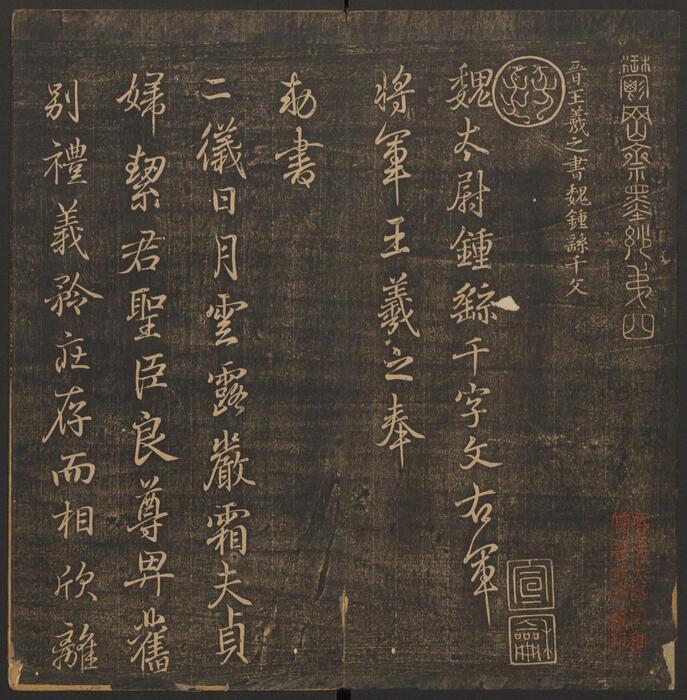 鬱岡齋墨妙第四
晉王羲之書魏鍾繇千文
魏太尉鍾繇千字文右軍
將軍王羲之奉
勑書
二儀日月雲露嚴霜夫貞
婦絜君聖臣良尊卑舊
別禮義矜莊存而相欣離
宣
龢